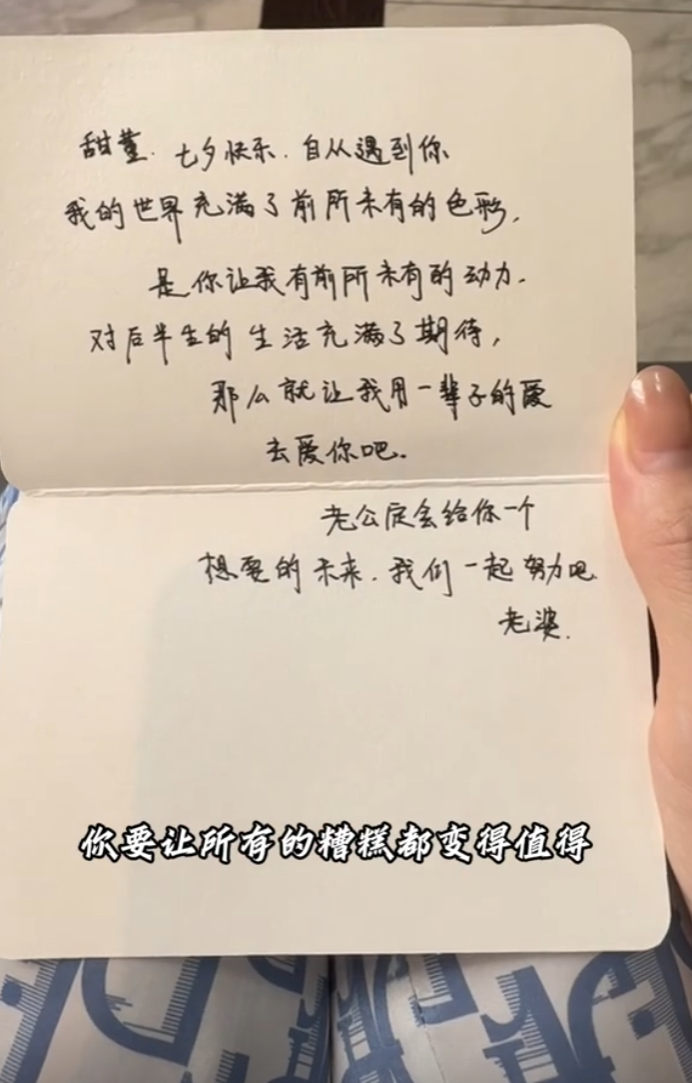 甜董.七夕快乐.自从遇到你
我的世界充满了前所未有的色彩,
是你让我有前所未有的动力.
对后半生的生活充满了期待,
那么就让我用一辈子的爱
去爱你吧.
老公定会给你一个
想要的未来.我们一起努力吧
老婆.
你要让所有的糟糕都变得值得